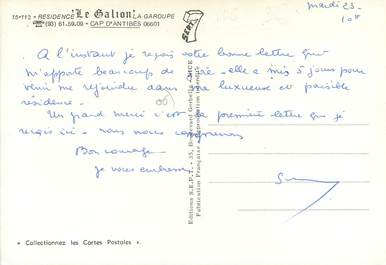 15-112 - RESIDENCE Le Galion LA GAROUPE
☎ (93) 61.59.09 - CAP D'ANTIBES 06601
SEPT
mardi 23 -
10H
A l'instant je reçois votre bonne lettre qui
m'apporte beaucoup de joie - elle a mis 5 jours pour
venir me rejoindre dans une luxueuse et paisible
résidence.
Un grand merci c'est la première lettre que je
reçois ici - nous nous comprenons
Bon courage
je vous embrasse
Editions S.E.P.T. - 35, Boulevard Gorbella - NICE
Fabrication Française - Reproduction Interdite
« Collectionnez les Cartes Postales ».